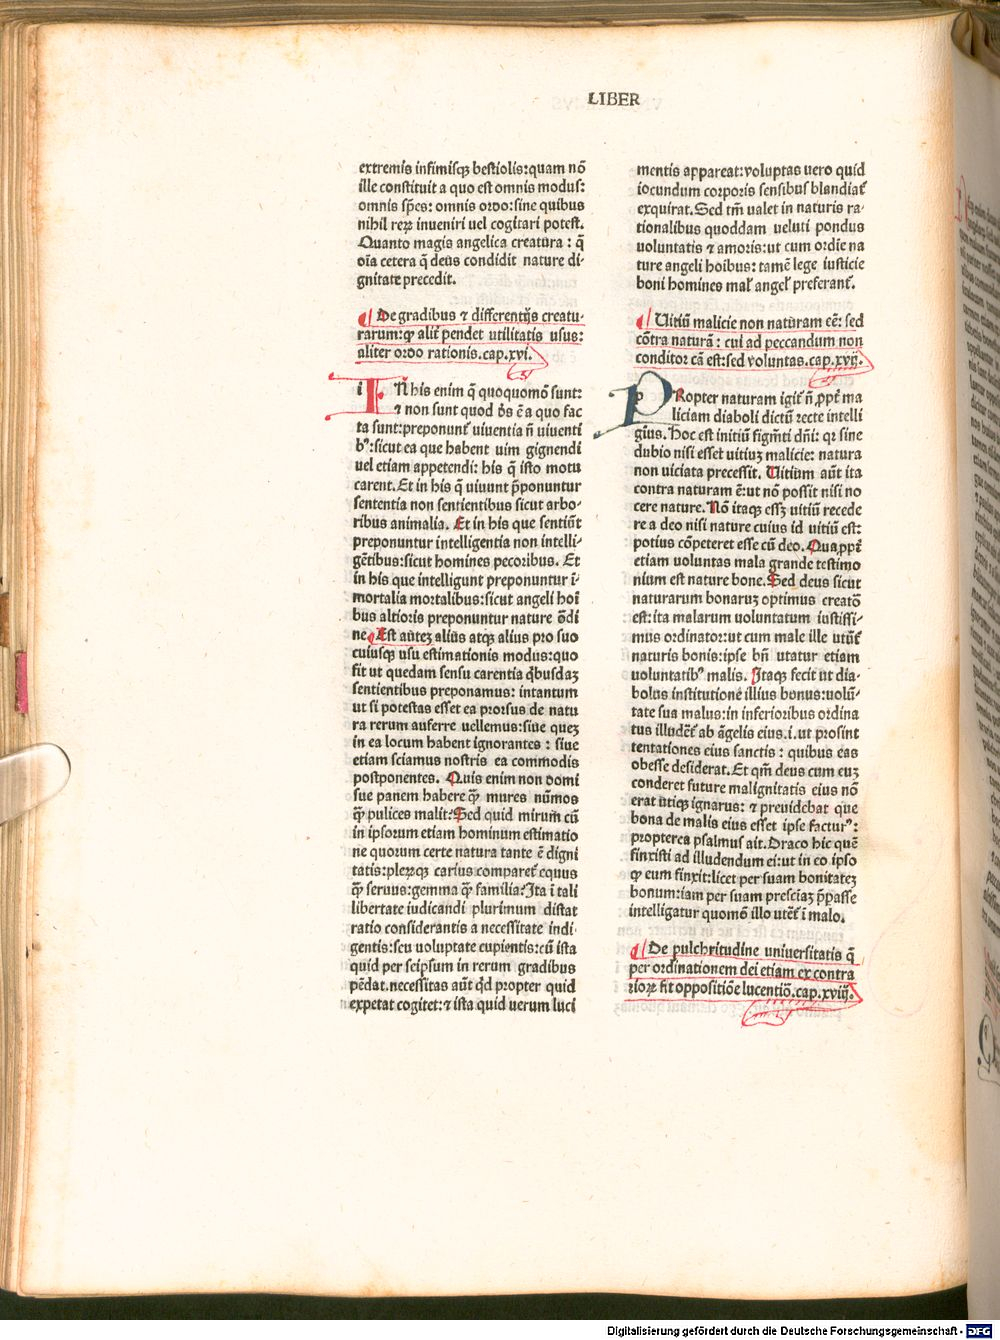 LIBER
extremis infimisqꝫ bestiolis:quam nō
ille constituit a quo est omnis modus:
omnis sp̄es: omnis ordo:sine quibus
nihil reꝝ inueniri uel cogitari potest.
Quanto magis angelica creatura : q̄
oīa cetera q̄ deus condidit nature di-
gnitate precedit.
De gradibus ⁊ differentijs creatu-
rarum:qꝙ alit̄ pendet utilitatis usus:
aliter ordo rationis.cap.xvi.
iN his enim q̄ quoquomō sunt:
⁊ non sunt quod d̄s ē a quo fac
ta sunt:preponunt̄ uiuentia ñ uiuenti
bꝰ:sicut ea que habent uim gignendi
uel etiam appetendi: his q̄ isto motu
carent.Et in his q̄ uiuunt p̄ponuntur
sententia non sentientibus sicut arbo-
ribus animalia. Et in his que sentiūt
preponuntur intelligentia non intelli-
gētibus:sicut homines pecoribus. Et
in his que intelligunt preponuntur ī-
mortalia mortalibus:sicut angeli hoī
bus altioris preponuntur nature ōdi
ne. Est autez alius atqꝫ alius pro suo
cuiusqꝫ usu estimationis modus:quo
fit ut quedam sensu carentia q̇busdaꝫ
sentientibus preponamus: intantum
ut si potestas esset ea prorsus de natu
ra rerum auferre uellemus:siue queꝫ
in ea locum habent ignorantes : siue
etiam sciamus nostris ea commodis
postponentes. Quis enim non domi
sue panem habere qꝙ̄ mures nūmos
qꝙ̄ pulices malit:Sed quid mirum cū
in ipsorum etiam hominum estimatio
ne quorum certe natura tante ē digni
tatis:pleꝝqꝫ carius comparet̄ equus
qꝙ̄ seruus:gemma qꝙ̄ familia?Ita ī tali
libertate iudicandi plurimum distat
ratio considerantis a necessitate indi-
gentis:seu uoluptate cupientis:cū ista
quid per seipsum in rerum gradibus
pēdat.necessitas aūt q̇d propter quid
expetat cogitet:⁊ ista quid uerum luci
mentis appareat:uoluptas uero quid
iocundum corporis sensibuſ blandiat̄
exquirat.Sed tm̄ ualet in naturis ra-
tionalibus quoddam ueluti pondus
uoluntatis ⁊ amoris:ut cum ordīe na
ture angeli hoībus: tamē lege iusticie
boni homines malꝭ angelꝭ preferant̄.
Uitiū malicie non naturam eē: sed
cōtra naturā: cui ad peccandum non
conditor cā est:sed voluntas.cap.xvij.
pRopter naturam igit̄ ñ ꝓpt̄ ma
liciam diaboli dictū recte intelli
giūs.Hoc est initiū figmt̄i dn̄i: qꝛ sine
dubio nisi esset uitiuꝫ malicie: natura
non uiciata precessit. Uitium aūt ita
contra naturam ē:ut nō possit nisi no
cere nature. Nō itaqꝫ esſꝫ uitiū recede
re a deo nisi nature cuius id uitiū est:
potius cōpeteret esse cū deo. Quaꝓpt̄
etiam uoluntas mala grande testimo
nium est nature bone.Sed deus sicut
naturarum bonaruꝫ optimus creatō
est:ita malarum uoluntatum iustissi-
mus ordinator:ut cum male ille utūt̄
naturis bonis:ipse bn̄ utatur etiam
uoluntatibꝰ malis. Itaqꝫ fecit ut dia-
bolus institutione illius bonus:uolū-
tate sua malus:in inferioribus ordina
tus illudēt̄ ab āgelis eius.i.ut prosint
tentationes eius sanctis : quibus eas
obesse desiderat.Et qm̄ deus cum euꝫ
conderet future malignitatis eius nō
erat utiqꝫ ignarus: ⁊ preuidebat que
bona de malis eius esset ipse facturꝰ:
propterea psalmus ait.Draco hic quē
finxisti ad illudendum ei:ut in eo ipso
qꝙ eum finxit:licet per suam bonitateꝫ
bonum:iam per suam presciaꝫ p̄passe
intelligatur quomō illo utēt̄ ī malo.
De pulchritudine uniuersitatis q̄
per ordinationem dei etiam ex contra
rioꝝ fit oppositiōe lucentiō.cap.xviij.
Digitalisierung gefördert durch die Deutsche Forschungsgemeinschaft - DFG